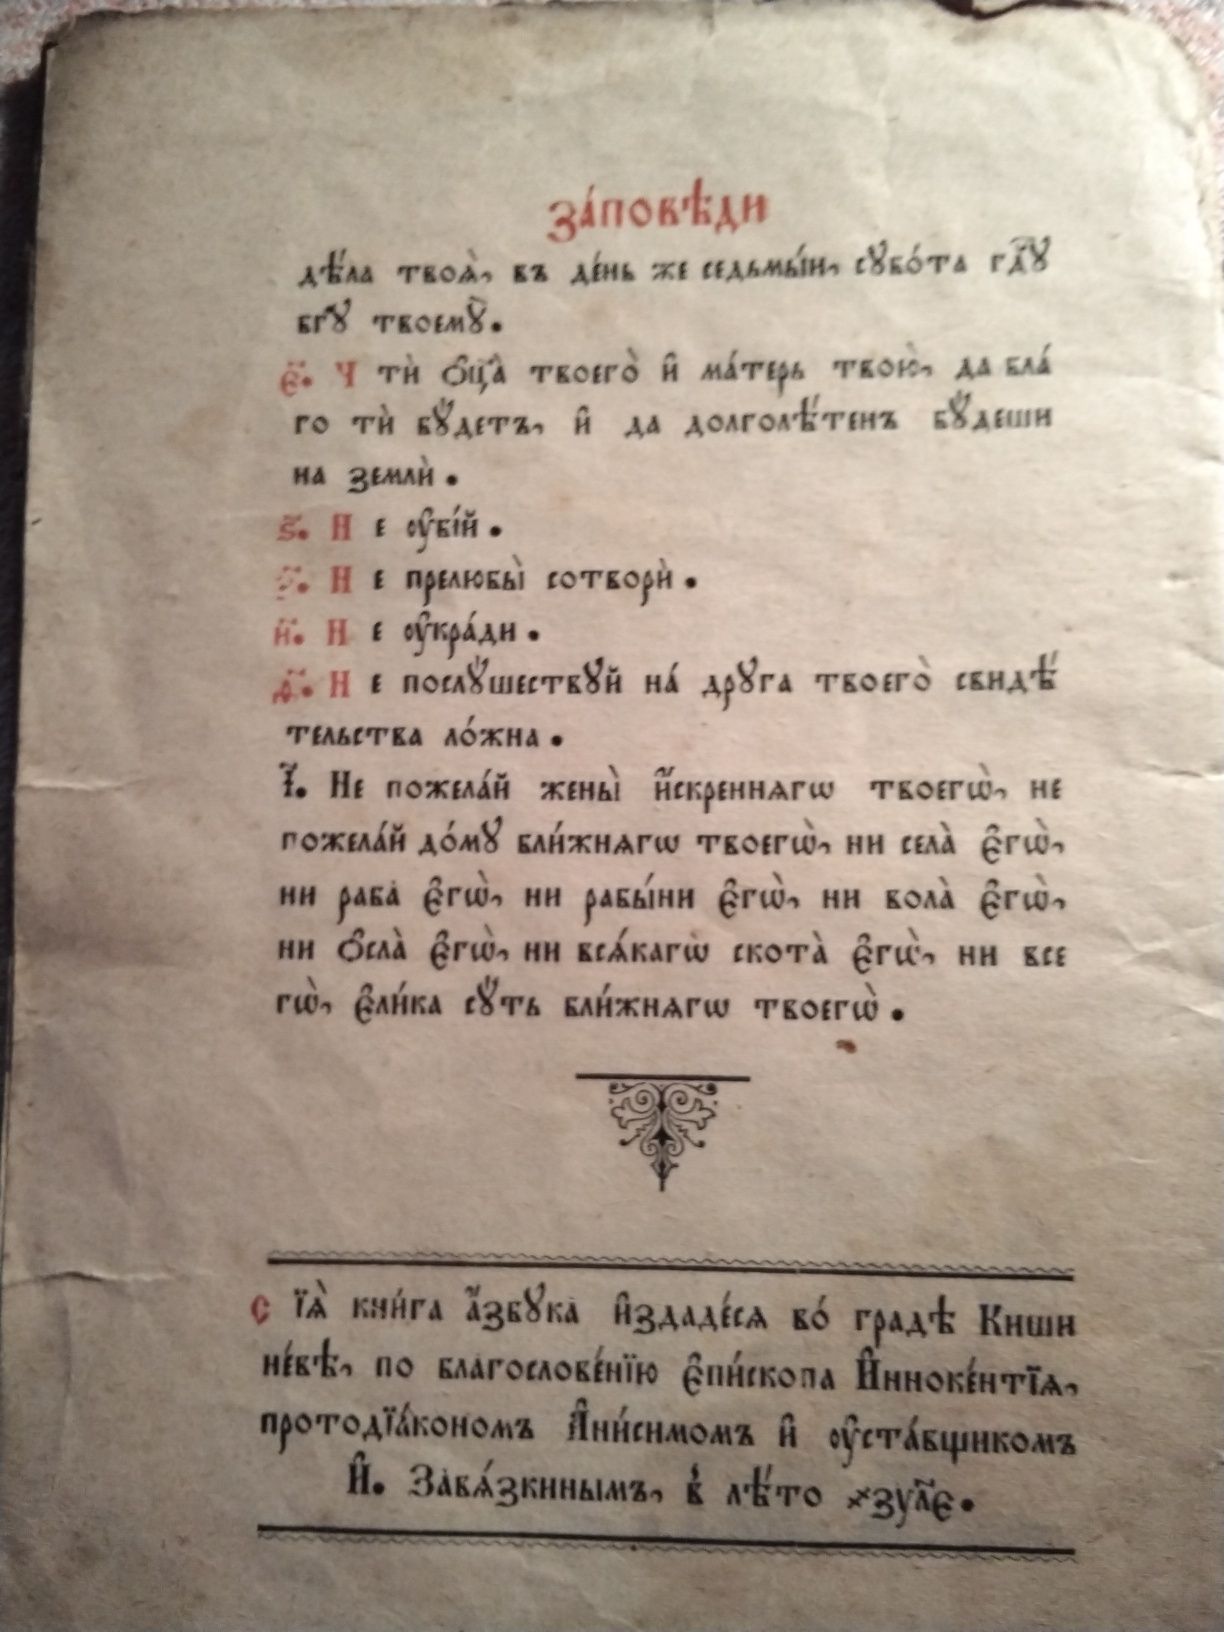 За́повѣди
дѣ́ла твоѧ̀, въ де́нь же седьмы́и, сꙋбо́та гд҇ꙋ
бг҃ꙋ твоемꙋ̀.
є҃. Чтѝ ѻ҆ц҃а̀ твоего̀ и҆ ма́терь твою̀, да бла́
го тѝ бꙋ́детъ, и҆ да долголѣ́тенъ бꙋ́деши
на землѝ.
ѕ҃. Не ᲂу҆бі́й.
з҃. Не прелюбы̀ сотворѝ.
и҃. Не ᲂу҆кра́ди.
ѳ҃. Не послꙋ́шествꙋй на́ дрꙋга твоего̀ свидѣ́
тельства ло́жна.
і҃. Не пожела́й жены̀ и҆́скреннѧгѡ твоегѡ̀, не
пожела́й до́мꙋ бли́жнѧгѡ твоегѡ̀, ни села̀ є҆гѡ̀,
ни раба̀ є҆гѡ̀, ни рабы́ни є҆гѡ̀, ни вола̀ є҆гѡ̀,
ни ѻ҆сла̀ є҆гѡ̀, ни всѧ́кагѡ̀ скота̀ є҆гѡ̀, ни все
гѡ̀, є҆ли́ка сꙋ́ть бли́жнѧгѡ твоегѡ̀.
Сїѧ̀ кни́га а҆́збꙋка и҆здаде́сѧ во́ градѣ Киши
не́вѣ, по благослове́нїю є҆пи́скопа И҆нноке́нтїѧ,
протодїа́кономъ А҆ни́симомъ и҆ ᲂу҆ста́вщикомъ
И҆. Завѧ́зкинымъ, в̾ лѣ́то ҂зул҃є.